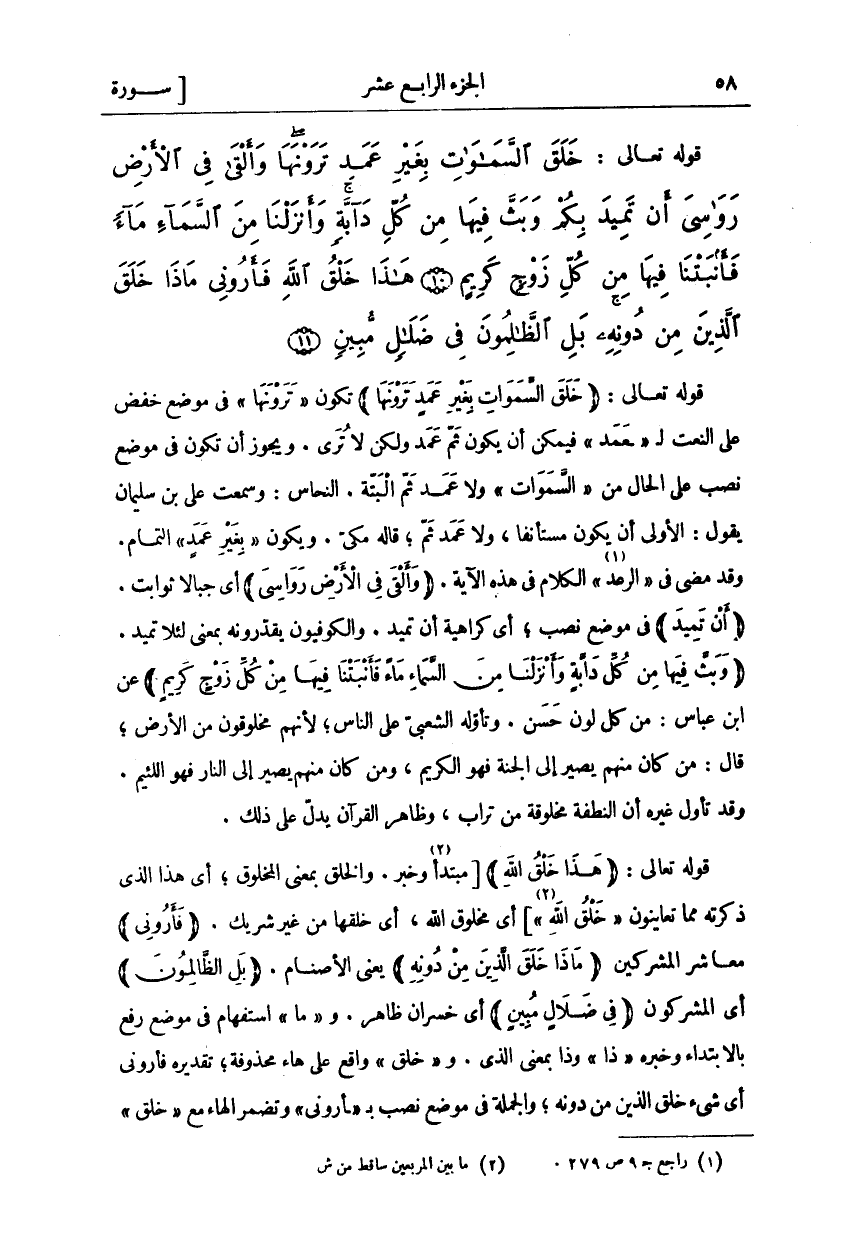 ٥٨ الجزء الرابع عشر [ ســورة
قوله تعـالى : خَلَقَ ٱلسَّمَـٰوَٰتِ بِغَيْرِ عَمَدٍ تَرَوْنَهَا ۖ وَأَلْقَىٰ فِى ٱلْأَرْضِ
رَوَٰسِىَ أَن تَمِيدَ بِكُمْ وَبَثَّ فِيهَا مِن كُلِّ دَآبَّةٍ ۚ وَأَنزَلْنَا مِنَ ٱلسَّمَآءِ مَآءً
فَأَنۢبَتْنَا فِيهَا مِن كُلِّ زَوْجٍ كَرِيمٍ ۝١٠ هَـٰذَا خَلْقُ ٱللَّهِ فَأَرُونِى مَاذَا خَلَقَ
ٱلَّذِينَ مِن دُونِهِۦ ۚ بَلِ ٱلظَّـٰلِمُونَ فِى ضَلَـٰلٍ مُّبِينٍ ۝١١
قوله تعـالى : ﴿ خَلَقَ السَّمَوَاتِ بِغَيْرِ عَمَدٍ تَرَوْنَهَا ﴾ تكون « تَرَوْنَهَا » فى موضع خفض
على النعت لـ « ـعَمَد » فيمكن أن يكون ثَمّ عَمَد ولكن لا تُرَى . ويجوز أن تكون فى موضع
نصب على الحال من « السَّمَوَات » ولا عَمَـد ثَمّ الْبَتّة . النحاس : وسمعت على بن سليمان
يقول : الأولى أن يكون مستأنفا ، ولا عَمَد ثَمّ ؛ قاله مكىّ . ويكون « بِغَيْرِ عَمَدٍ» التمـام.
وقد مضى فى « الرعد »(١) الكلام فى هذه الآية . ﴿ وَأَلْقَى فِى الْأَرْضِ رَوَاسِىَ ﴾ أى جبالا ثوابت .
﴿ أَنْ تَمِيدَ ﴾ فى موضع نصب ؛ أى كراهية أن تميد . والكوفيون يقدّرونه بمعنى لئلا تميد .
﴿ وَبَثَّ فِيهَا مِن كُلِّ دَابَّةٍ وَأَنْزَلْنَـا مِنَ السَّمَاءِ مَاءً فَأَنْبَتْنَا فِيهَـا مِنْ كُلِّ زَوْجٍ كَرِيمٍ ﴾ عن
ابن عباس : من كل لون حَسَن . وتأوّله الشعبىّ على الناس ؛ لأنهم مخلوقون من الأرض ؛
قال : من كان منهم يصير إلى الجنة فهو الكريم ، ومن كان منهم يصير إلى النار فهو اللئيم .
وقد تأول غيره أن النطفة مخلوقة من تراب ، وظاهر القرآن يدلّ على ذلك .
قوله تعالى : ﴿ هَـذَا خَلْقُ اللَّهِ ﴾ [(٢) مبتدأ وخبر . والخلق بمعنى المخلوق ؛ أى هذا الذى
ذكرته مما تعاينون « خَلْقُ اللَّهِ »](٢) أى مخلوق الله ، أى خلقها من غير شريك . ﴿ فَأَرُونِى ﴾
معـاشر المشركين ﴿ مَاذَا خَلَقَ الَّذِينَ مِنْ دُونِهِ ﴾ يعنى الأصنـام . ﴿ بَلِ الظَّالِمُونَ ﴾
أى المشركون ﴿ فِى ضَـلَالٍ مُبِينٍ ﴾ أى خسران ظاهر . و « ما » استفهام فى موضع رفع
بالابتداء وخبره « ذا » وذا بمعنى الذى . و « خلق » واقع على هاء محذوفة ؛ تقديره فأرونى
أى شىء خلق الذين من دونه ؛ والجملة فى موضع نصب بـ « ـأرونى» وتضمر الهاء مع « خلق »
(١) راجع جـ ٩ ص ٢٧٩ . (٢) ما بين المربعين ساقط من ش